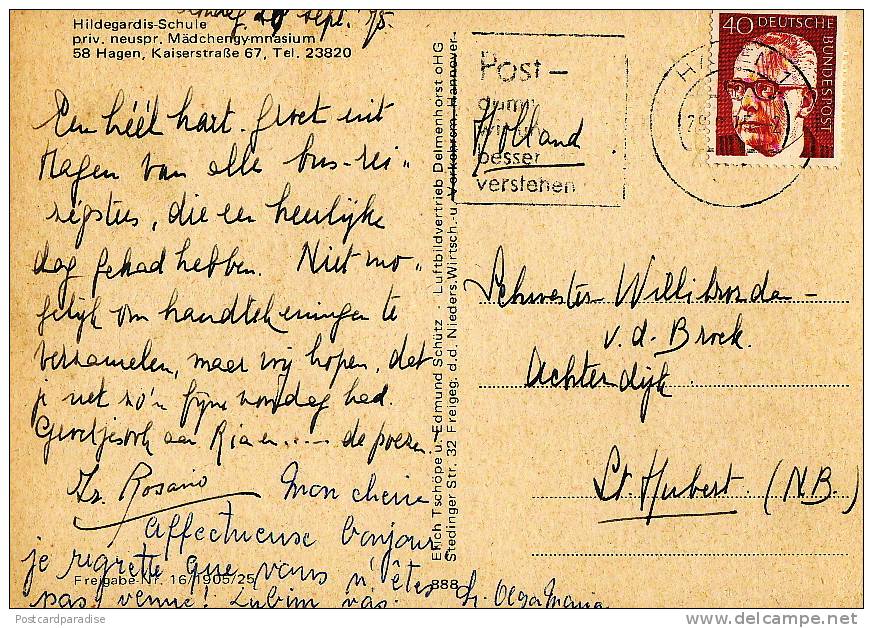 29 Sept. 75.
Hildegardis-Schule
priv. neuspr. Mädchengymnasium
58 Hagen, Kaiserstraße 67, Tel. 23820
Een héél hart. groet uit
Hagen van alle bus-rei-
zigsters, die een heerlijke
dag gehad hebben. Niet mo-
gelijk om handtekeningen te
verzamelen, maar wij hopen, dat
je net zo'n fijne zondag had.
Groetjes ook aan Ria en ..... de poezen
Zr. Rosario
Mon cherie
affectueuse bonjour
je regrette que vous n'êtes
pas venue!
Freigabe-Nr. 16/1905/25
888
Zr. Olga Maria
Erich Tschöpe u. Edmund Schütz · Luftbildvertrieb Delmenhorst oHG
Stedinger Str. 32 Freigeg. d.d. Nieders. Wirtsch.- u. Verkehrsm. Hannover-
Post-
damit
wir uns
besser
verstehen
40 DEUTSCHE
BUNDESPOST
Holland
Schwester Willibrorda-
v.d. Brock.
Achterdijk
St. Hubert. (N.B.)
Postcardparadise
delcampe.net